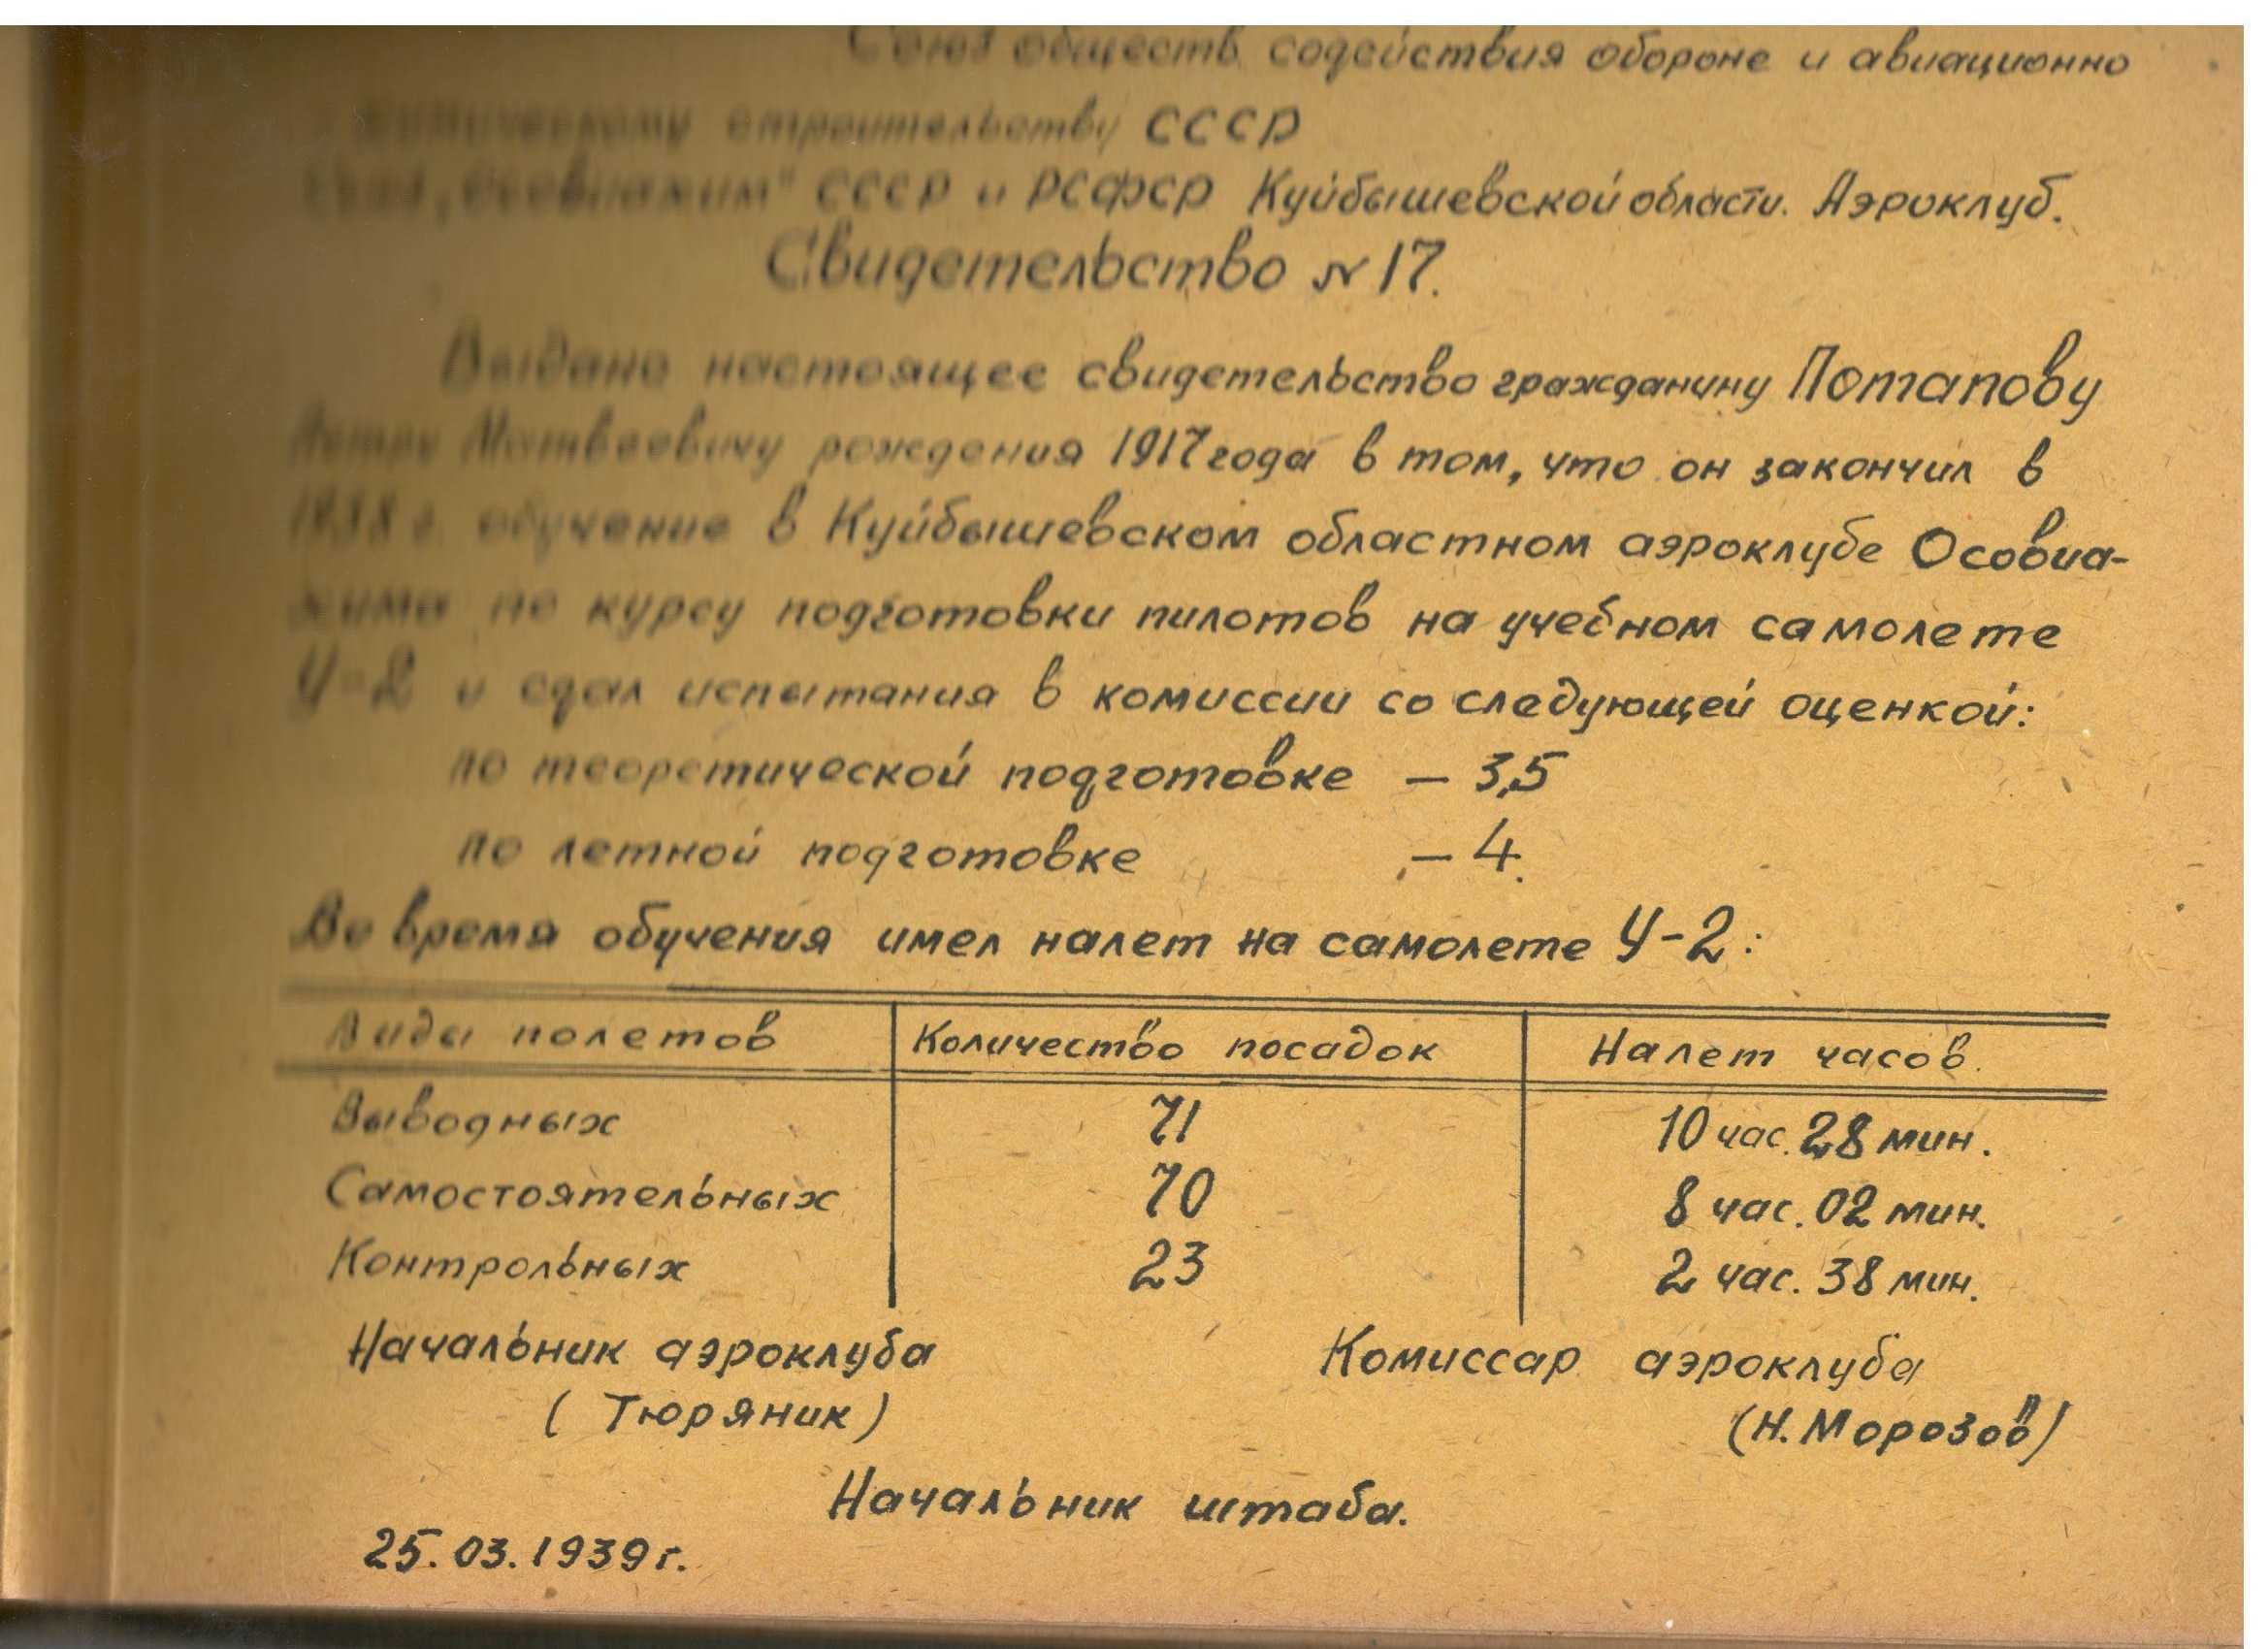 Союз обществ содействия обороне и авиационно
химическому строительству СССР
"Осоавиахим" СССР и РСФСР Куйбышевской области. Аэроклуб.
Свидетельство № 17.
Выдано настоящее свидетельство гражданину Потапову
Петру Матвеевичу рождения 1917 года в том, что он закончил в
1938 г. обучение в Куйбышевском областном аэроклубе Осовиа-
хима по курсу подготовки пилотов на учебном самолете
У-2 и сдал испытания в комиссии со следующей оценкой:
по теоретической подготовке – 3,5
по летной подготовке – 4.
Во время обучения имел налет на самолете У-2:
Виды полетов Количество посадок Налет часов.
Выводных 71 10 час. 28 мин.
Самостоятельных 70 8 час. 02 мин.
Контрольных 23 2 час. 38 мин.
Начальник аэроклуба Комиссар аэроклуба
(Тюряник) (Н. Морозов)
Начальник штаба.
25.03.1939 г.